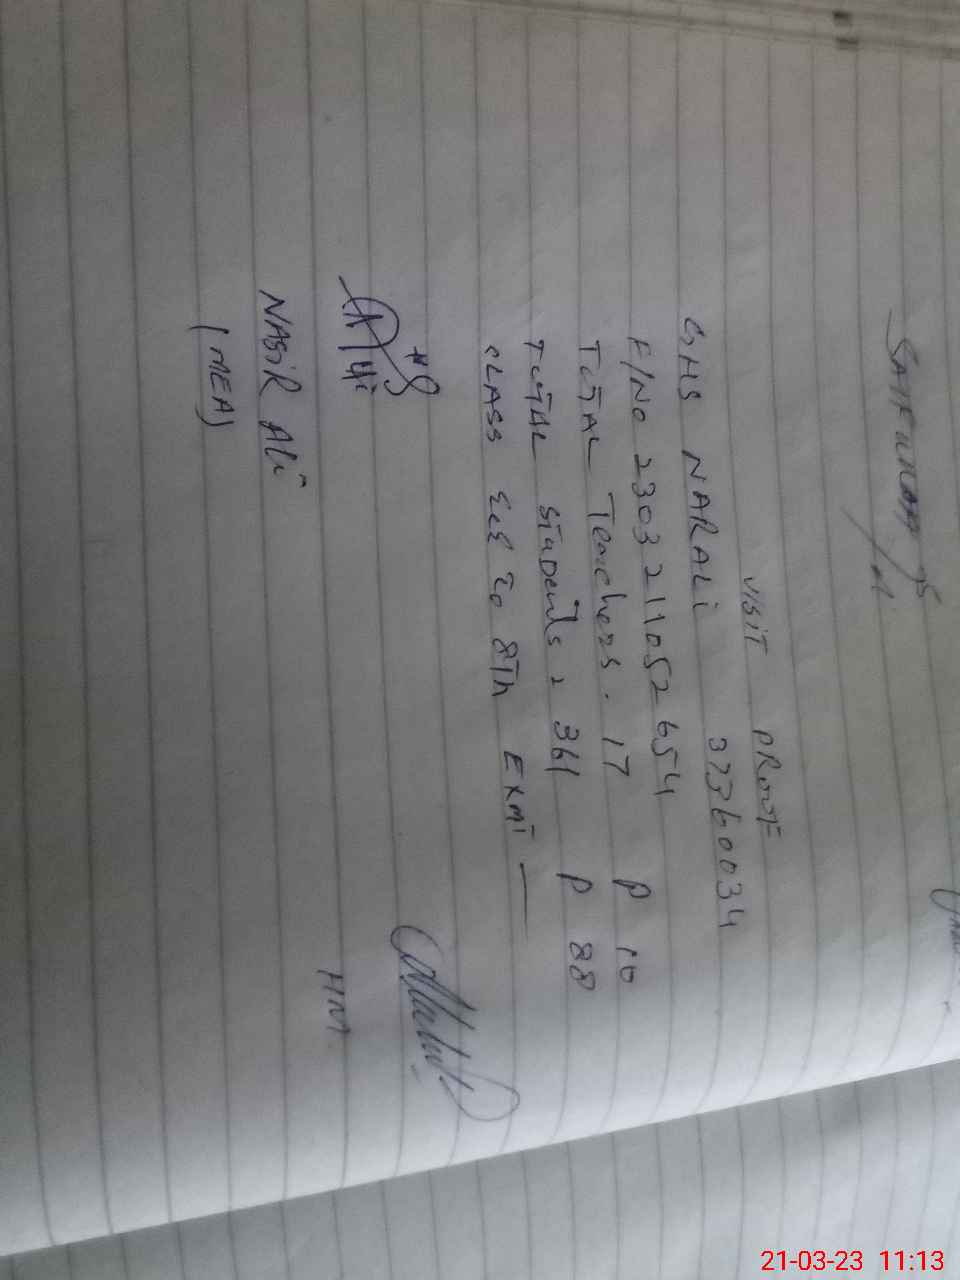 VISIT PROOF
GHS NARALi 37360034
F/No 2303211052654
TOTAL Teachers. 17 P 10
TOTAL Students 2 361 P 88
CLASS ECE To 8Th EXMT —
HM
NASiR ALi
(MEA)
21-03-23 11:13